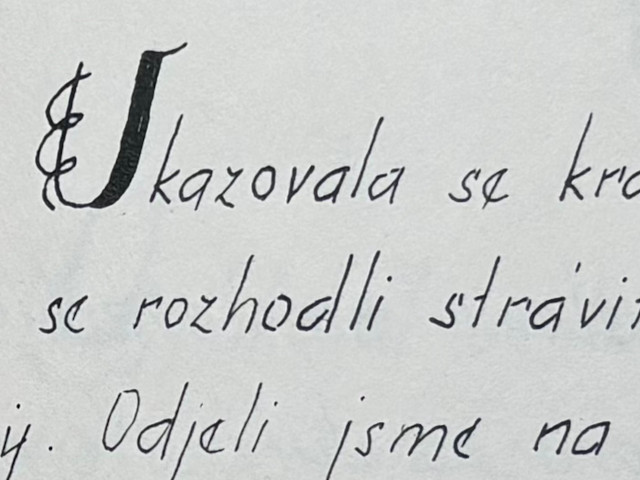 Ukazovala se kra
se rozhodli strávit
ij. Odjeli jsme na